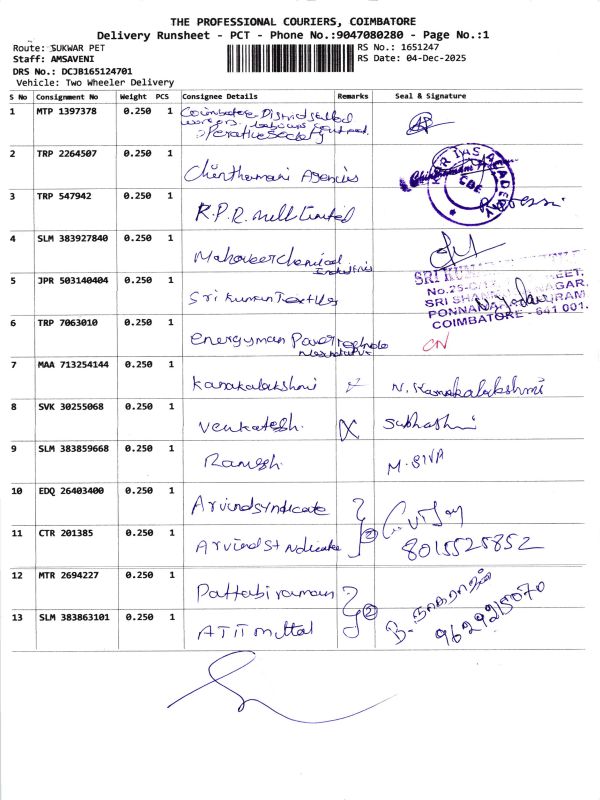 THE PROFESSIONAL COURIERS, COIMBATORE
Delivery Runsheet - PCT - Phone No.:9047080280 - Page No.:1
Route: SUKWAR PET
RS No.: 1651247
Staff: AMSAVENI
RS Date: 04-Dec-2025
DRS No.: DCJB165124701
Vehicle: Two Wheeler Delivery
S No Consignment No Weight PCS Consignee Details Remarks Seal & Signature
1 MTP 1397378 0.250 1 Coimbatore District
2 TRP 2264507 0.250 1 Chinthamani Agencies
3 TRP 547942 0.250 1 R.P.R. mill Limited
4 SLM 383927840 0.250 1 Mahaveer Chemical
Industries
5 JPR 503140404 0.250 1 Sri Kumaran Textiles
SRI
No.
SRI
PONNA
COIMBATORE - 641 001.
6 TRP 7063010 0.250 1 Energyman Power
CN
7 MAA 713254144 0.250 1 Kanakalakshmi N. Kanakalakshmi
8 SVK 30255068 0.250 1 Venkatesh. Subhashni
9 SLM 383859668 0.250 1 Ramesh. M. SIVA
10 EDQ 26403400 0.250 1 Arvind syndicate
11 CTR 201385 0.250 1 Arvind Syndicate 2 8015525852
12 MTR 2694227 0.250 1 Pattabiraman 2 B. நாகராஜ்
13 SLM 383863101 0.250 1 AJIT mittal 9629215070